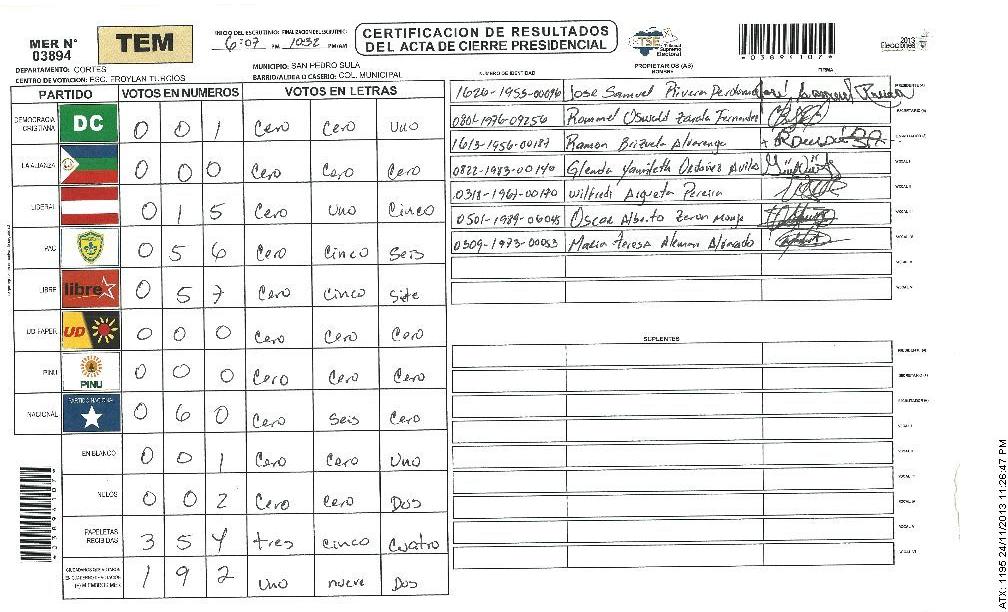 MER N° 03894
TEM
INICIO DEL ESCRUTINIO: 6:07 PM FINALIZACION DEL ESCRUTINIO: 10:32 PM/AM
CERTIFICACION DE RESULTADOS DEL ACTA DE CIERRE PRESIDENCIAL
TSE Tribunal Supremo Electoral
*03894107*
2013 Elecciones
DEPARTAMENTO: CORTES
MUNICIPIO: SAN PEDRO SULA
CENTRO DE VOTACION: ESC. FROYLAN TURCIOS
BARRIO/ALDEA O CASERIO: COL. MUNICIPAL
PARTIDO VOTOS EN NUMEROS VOTOS EN LETRAS
DEMOCRACIA CRISTIANA DC 0 0 1 Cero Cero Uno
LA ALIANZA 0 0 0 Cero Cero Cero
LIBERAL 0 1 5 Cero Uno Cinco
PAC 0 5 6 Cero Cinco Seis
LIBRE libre 0 5 7 Cero Cinco Siete
UD FAPER UD 0 0 0 Cero Cero Cero
PINU PINU 0 0 0 Cero Cero Cero
NACIONAL PARTIDO NACIONAL 0 6 0 Cero Seis Cero
EN BLANCO 0 0 1 Cero Cero Uno
NULOS 0 0 2 Cero Cero Dos
PAPELETAS RECIBIDAS 3 5 4 tres cinco cuatro
1 9 2 Uno nueve Dos
PROPIETARIOS (AS)
NUMERO DE IDENTIDAD NOMBRE FIRMA
1626-1953-00096 Jose Samuel Rivera Perdomo PRESIDENTE (A)
0801-1976-09256 Rommel Oswald Zavala Fernandez SECRETARIO (A)
1613-1956-00187 Ramon Brizuela Alvarenga ESCRUTADOR (A)
0822-1983-00140 Glenda Yamileth Ordoñez Avila VOCAL I
0318-1967-00170 Wilfredi Argueta Pereira VOCAL II
0501-1989-06045 Oscar Alberto Zeron Monje VOCAL III
0309-1973-00053 Maria Teresa Aleman Alvarado VOCAL IV
VOCAL V
VOCAL VI
SUPLENTES
PRESIDENTE (A)
SECRETARIO (A)
ESCRUTADOR (A)
VOCAL I
VOCAL II
VOCAL III
VOCAL IV
VOCAL V
VOCAL VI
*03894107*
ATX: 1195 24/11/2013 11:26:47 PM